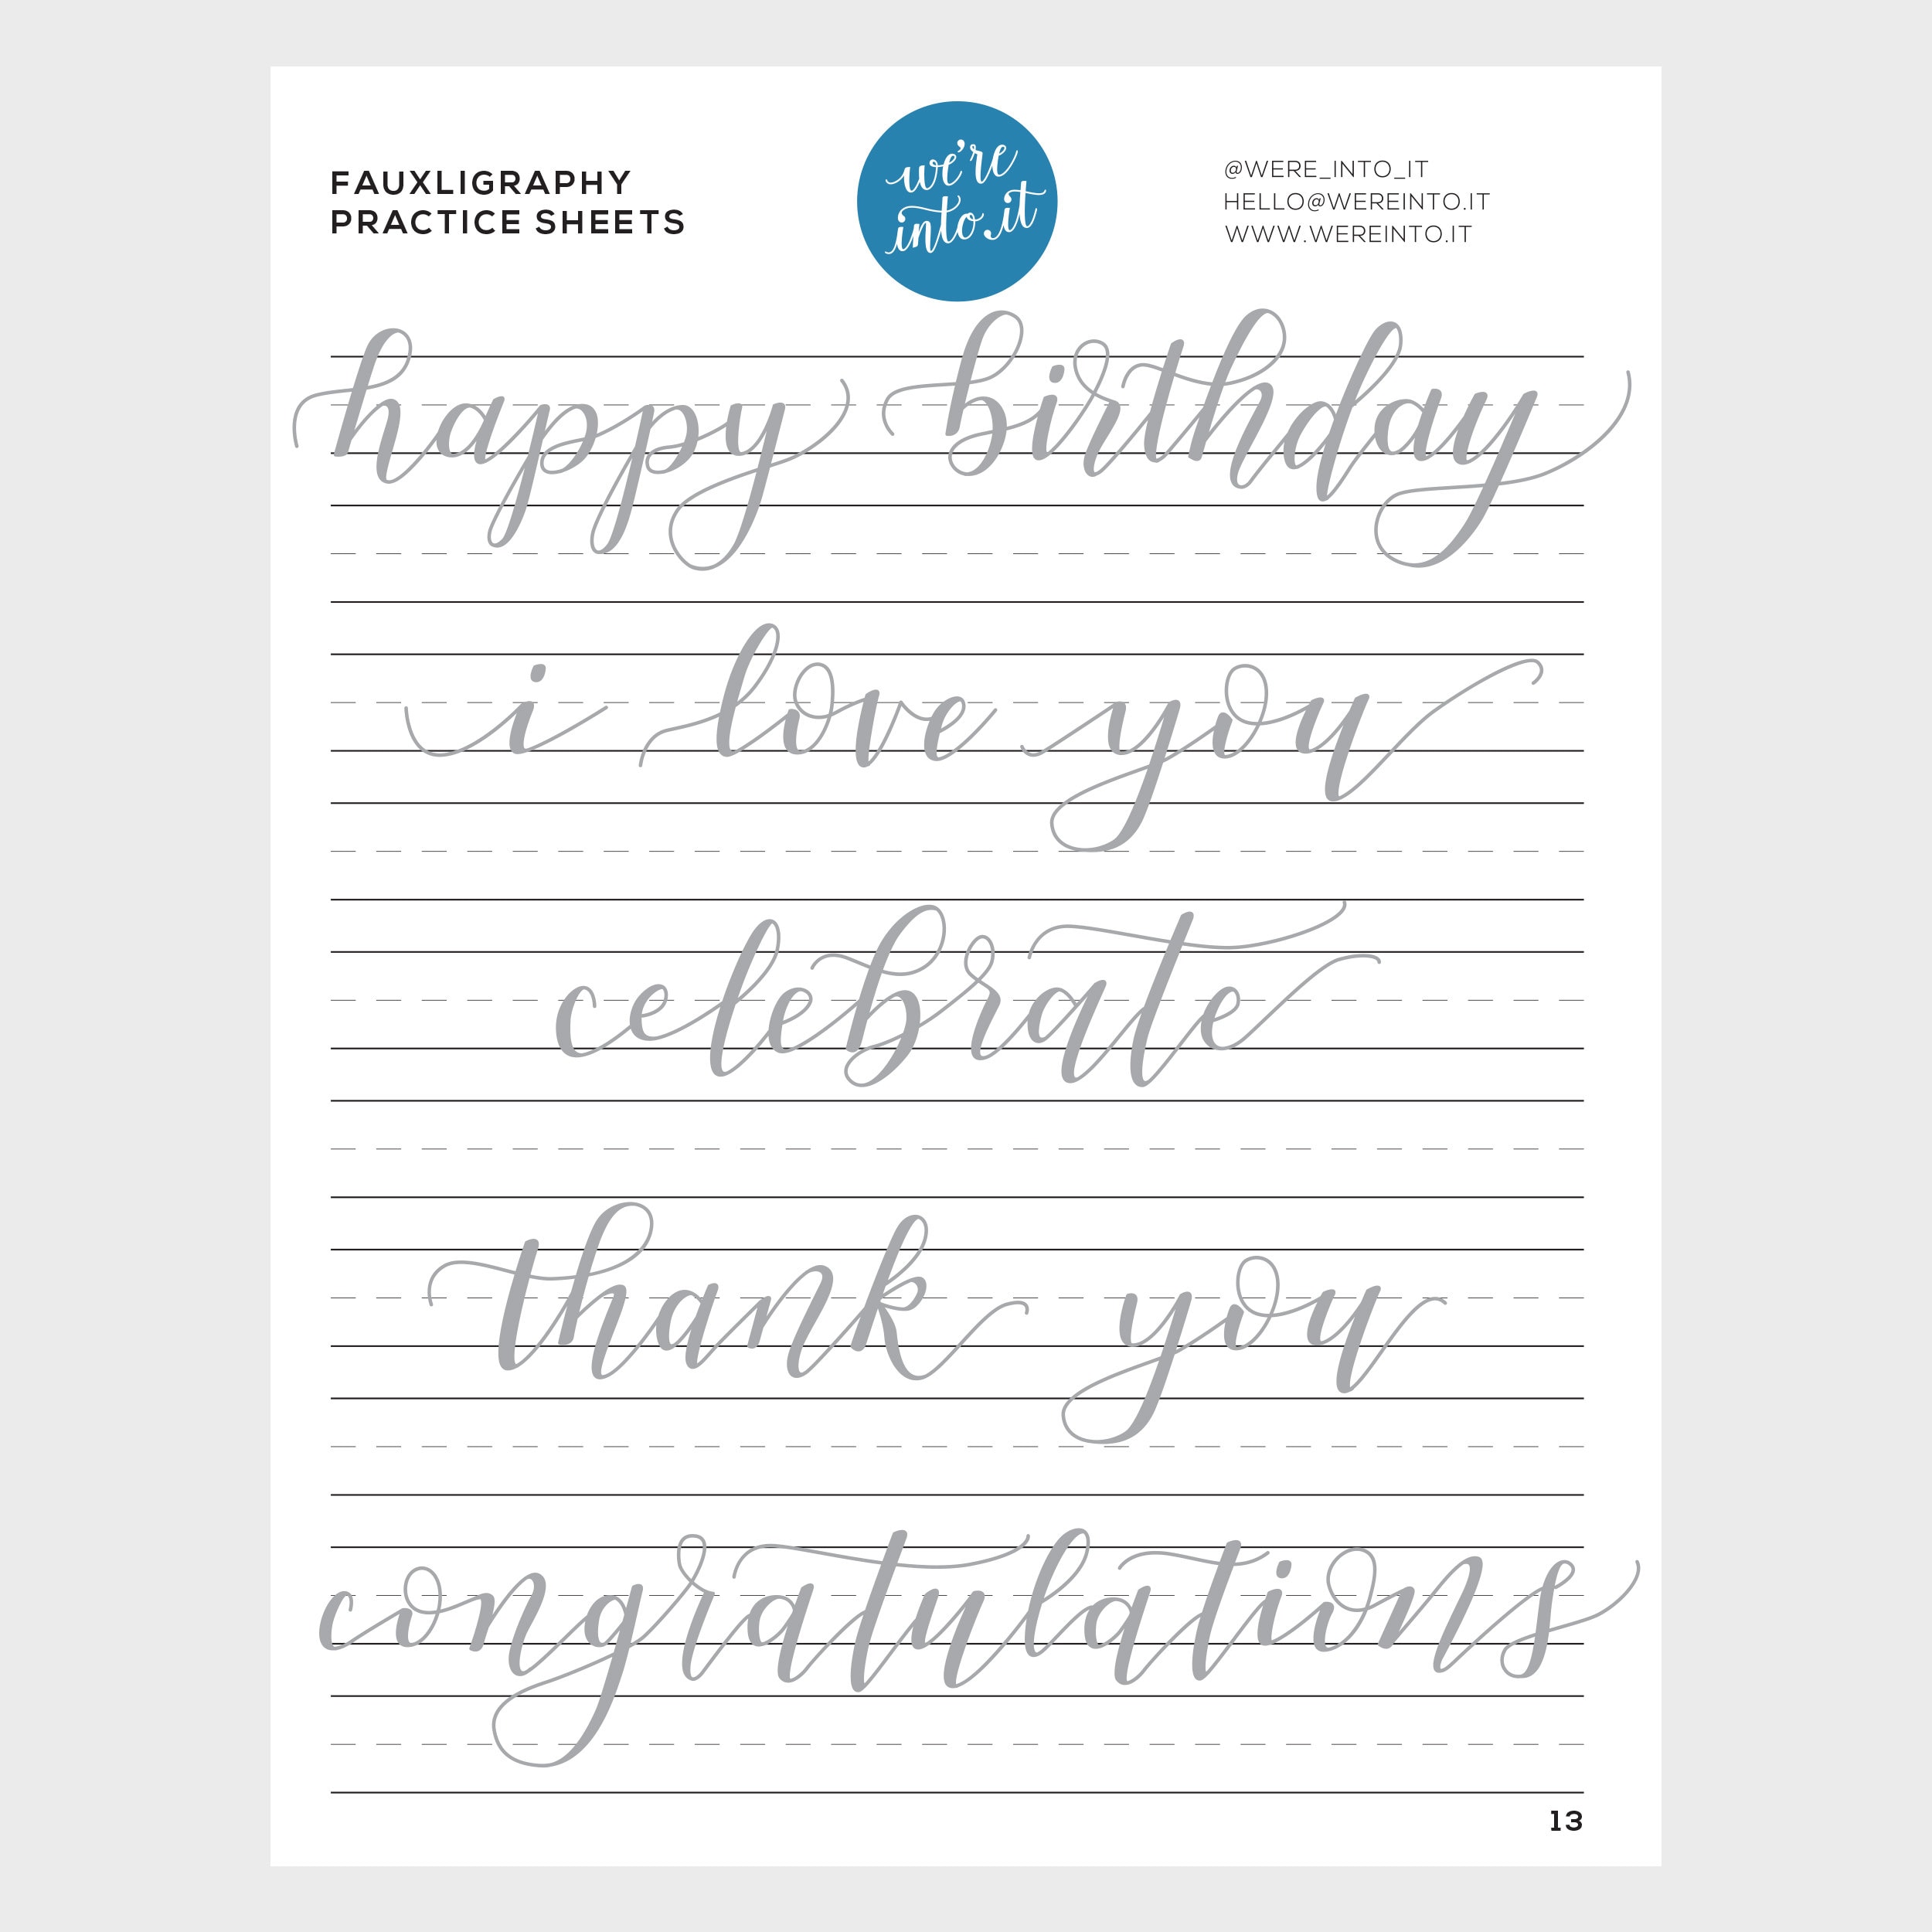 FAUXLIGRAPHY
PRACTICE SHEETS
we're
into.it
@WERE_INTO_IT
HELLO@WEREINTO.IT
WWW.WEREINTO.IT
happy birthday
i love you
celebrate
thank you
congratulations
13